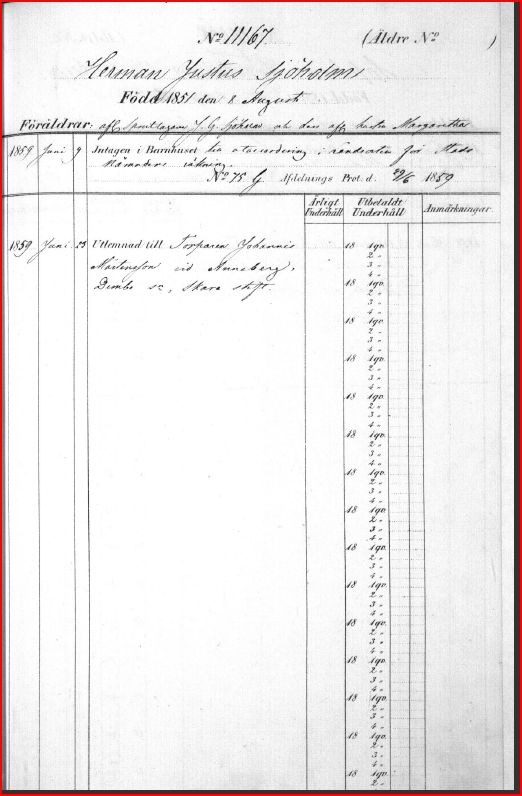 No 11167. (Äldre No )
Herman Justus Sjöholm
Född 1851 den 8 Augusti
Föräldrar: J. G. Sjöholm och dess afl. hustru Margaretha
1859 Juni 9 Intagen i Barnhuset för
räkning.
No 75 G. Afdelnings Prot. d. 29/6 1859
Årligt Underhåll Utbetaldt Underhåll Anmärkningar.
1859 Juni 23 Utlemnad till Torparen Johannes
Mårtensson vid Anneberg,
Dimbo sn, Skara stift.
18 1 qv.
2 „
3 „
4 „
18 1 qv.
2 „
3 „
4 „
18 1 qv.
2 „
3 „
4 „
18 1 qv.
2 „
3 „
4 „
18 1 qv.
2 „
3 „
4 „
18 1 qv.
2 „
3 „
4 „
18 1 qv.
2 „
3 „
4 „
18 1 qv.
2 „
3 „
4 „
18 1 qv.
2 „
3 „
4 „
18 1 qv.
2 „
3 „
4 „
18 1 qv.
2 „
3 „
4 „
18 1 qv.
2 „
3 „
4 „
18 1 qv.
2 „
3 „
4 „
18 1 qv.
2 „
3 „
4 „
18 1 qv.
2 „